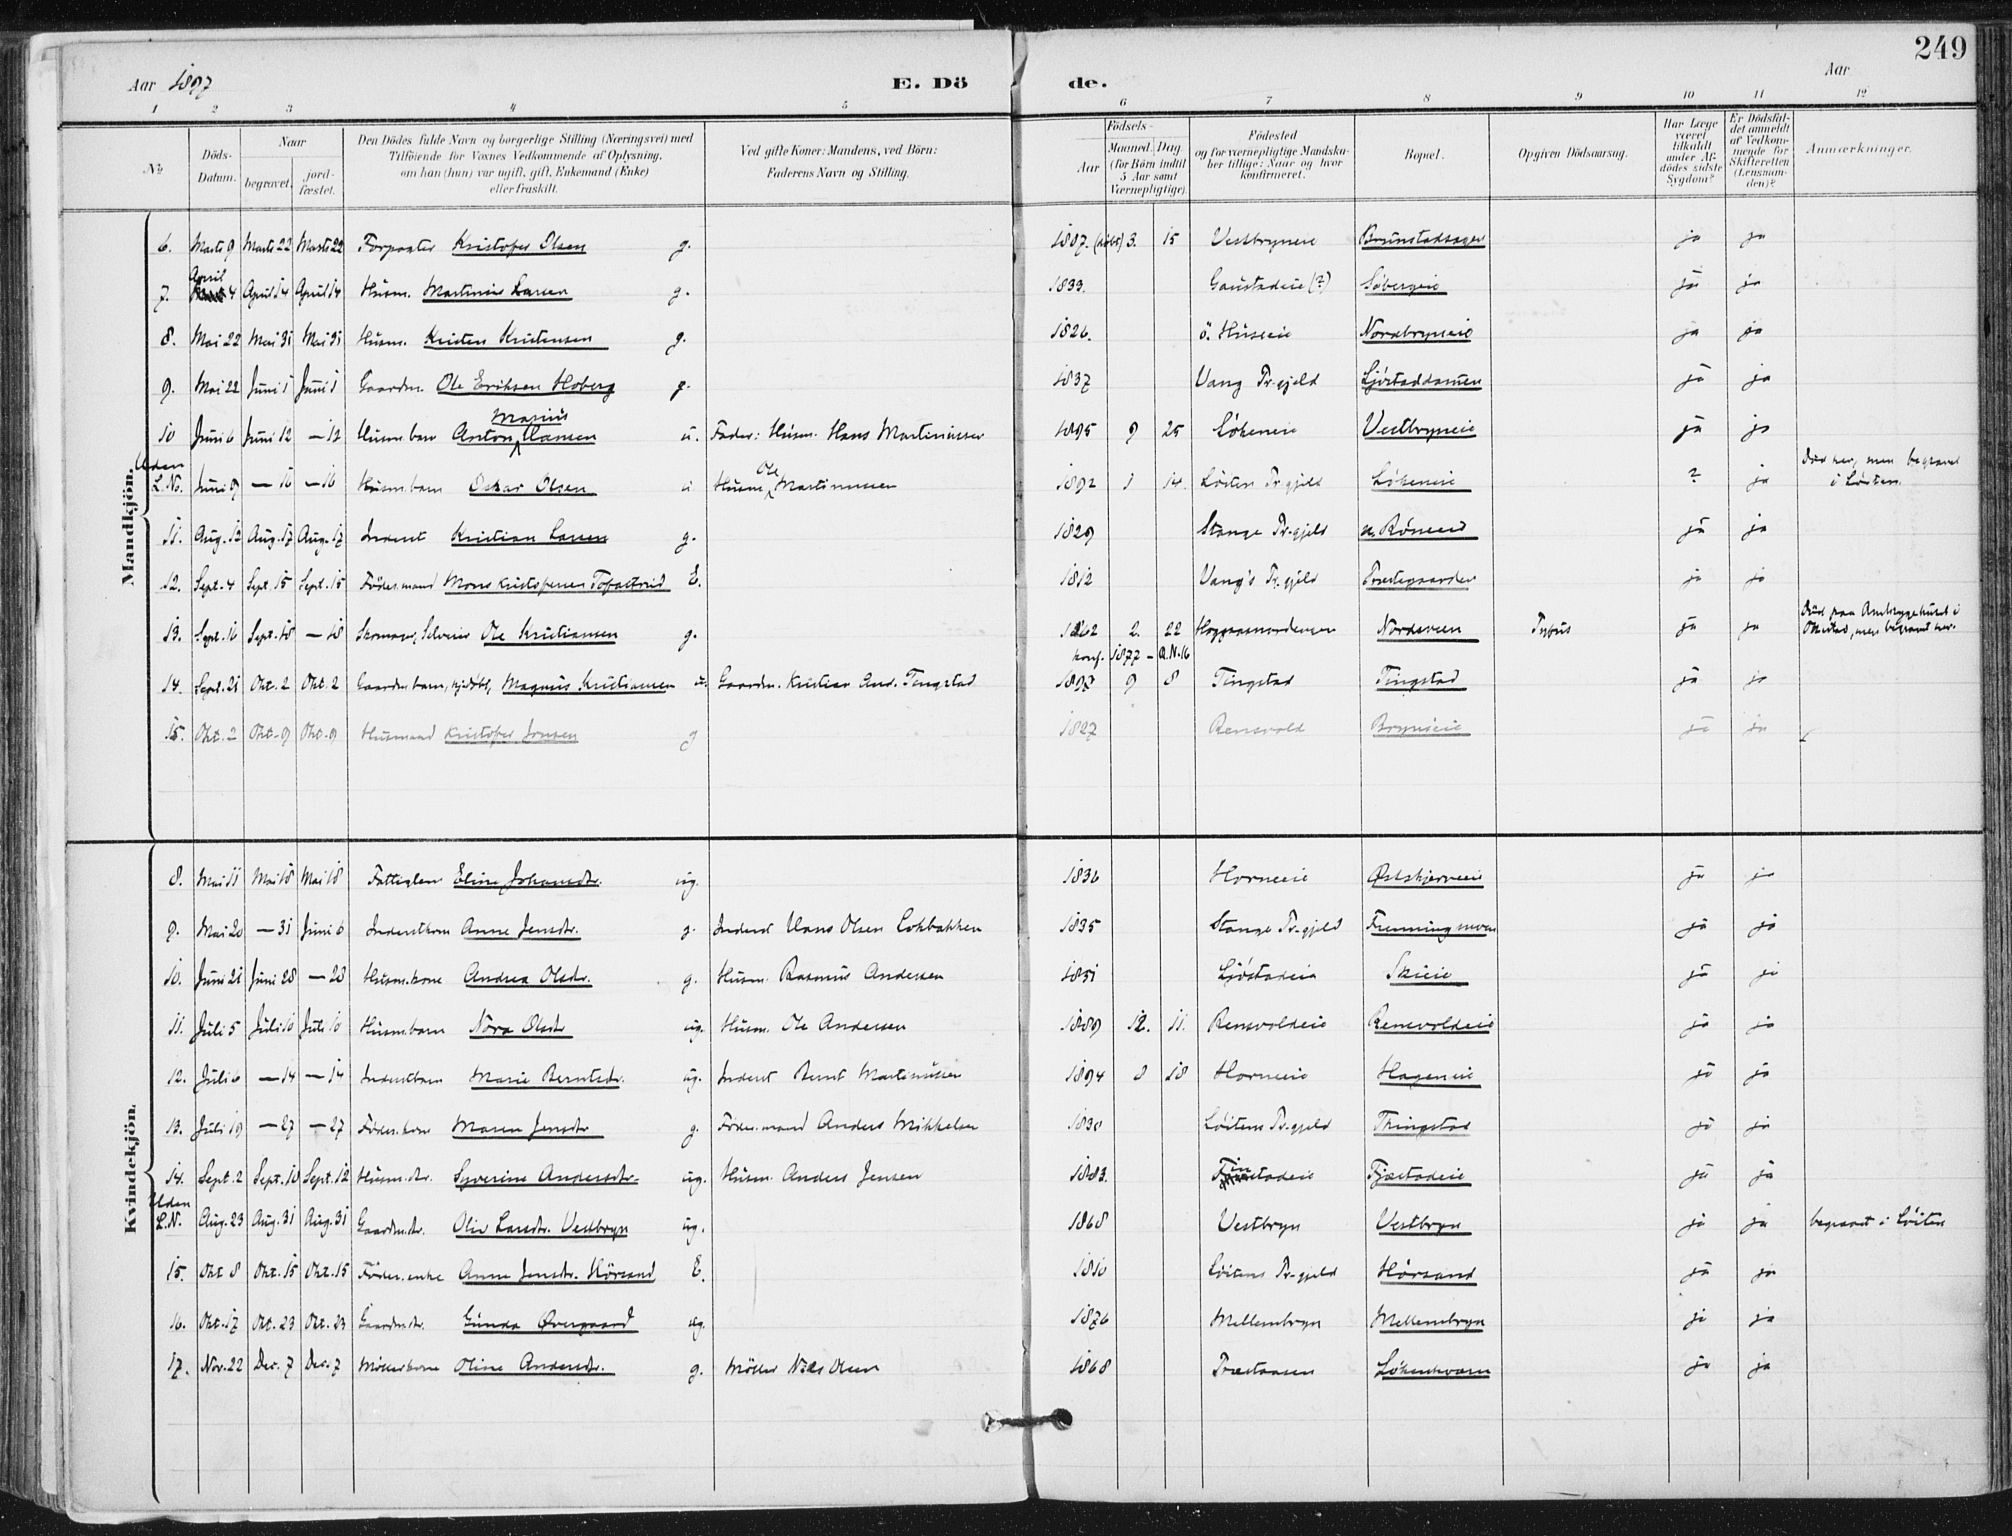 249
Aar 1897 E. Dö de. Aar
1 2 3 4 5 6 7 8 9 10 11 12
No
Döds-Datum.
Naar
begravet.
jordfæstet.
Den Dödes fulde Navn og borgerlige Stilling (Næringsvei) med
Tilföiende for Voxnes Vedkommende af Oplysning,
om han (hun) var ugift, gift, Enkemand (Enke)
eller fraskilt.
Ved gifte Koner: Mandens, ved Börn:
Faderens Navn og Stilling.
Födsels-
Aar
Maaned. Dag
(for Börn indtil
5 Aar samt
Værnepligtige).
Födested
og for værnepligtige Mandska-
ber tillige: Naar og hvor
konfirmeret.
Bopæl.
Opgiven Dödsaarsag.
Har Læge
været
tilkaldt
under Af-
dødes sidste
Sygdom?
Er Dödsfal-
det anmeldt
af Vedkom-
mende for
Skifteretten
(Lensman-
den)?
Anmærkninger.
Mandkjön.
6. Marts 9 Marts 22 Marts 22 Forpagter Kristofer Olsen g. (döbt) 3. 15 Vestbryneie ja ja
7. April 4 April 14 April 14 Husm. Martinius Larsen g. 1833. Gaustadeie (?) Söbergeie ja ja
8. Mai 22 Mai 31 Mai 31 Husm. Kristen Kristensen g. 1826. ö. Huseeie Nordbryneie ja ja
9. Mai 22 Juni 1 Juni 1 Gaardm. Ole Eriksen Hoberg g. 1837 Vang Pr.gjeld ja ja
10 Juni 6 Juni 12 — 12 Husm.barn Anton Marius Hansen u. Fader: Husm. Hans Martinussen 1895 9 25 Lökeneie Vestbryneie ja ja
Uden L. No. Juni 9 — 16 — 16 Husm.barn Oskar Olsen u Husm. Ole Martinussen 1892 1 14. Löiten Pr.gjeld Lökeneie ? ja Död her, men begravet i Löiten.
11. Aug. 12 Aug. 17 Aug. 17 Inderst Kristian Larsen g. 1829 Stange Pr.gjeld ja ja
12. Sept. 4 Sept. 15 Sept. 15 Föder.mand Mons Kristofersen E. 1812 Vang's Pr.gjeld Prestegaarden ja ja
13. Sept. 16 Sept. 18 — 18 Skomager, Selveier Ole Kristiansen g. 1862 2. 22 Nordsveen Tyfus ja ja
konf. 1877 – Q.N. 16
14. Sept. 21 Okt. 2 Okt. 2 Gaardm.barn, hjdöbt, Magnus Kristiansen u. Gaardm. Kristian And. Tingstad 1897 9 8 Tingstad Tingstad ja ja
15. Okt. 2 Okt. 9 Okt. 9 Husmand Kristofer Jensen g 1827 Rensvold Bryneie ja ja
Kvindekjön.
8. Mai 11 Mai 18 Mai 18 Fattiglem Eline Johansdtr. ug. 1836 Horneeie Østskjerveeie ja ja
9. Mai 20 — 31 Juni 6 Inderstkone Anne Jensdtr. g. Inderst Hans Olsen 1835 Stange Pr.gjeld ja ja
10. Juni 21 Juni 28 — 28 Husm.kone Andrea Olsdtr. g. Husm. Rasmus Andersen 1851 Ljöstadeie Skieie ja ja
11. Juli 5 Juli 10 Juli 10 Husm.barn Nora Olsdtr ug. Husm. Ole Andersen 1889 12. 11. Rensvoldeie Rensvoldeie ja ja
12. Juli 6 — 14 — 14 Inderstbarn Marie Berntsdtr. ug. Inderst Bernt Martinusen 1894 8 18 Horneeie Hageneie ja ja
13. Juli 19 — 27 — 27 Föder.kone Maren Jensdtr g. Föder.mand Anders Mikkelsen Löitens Pr.gjeld Thingstad ja ja
14. Sept. 2 Sept. 10 Sept. 12 Husm.dtr. Syverine Andersdtr. ug. Husm. Anders Jensen 1883. Fjæstadeie ja ja
Uden L.N. Aug. 23 Aug. 31 Aug. 31 Gaardm.dtr. Oliv Larsdtr. Vestbryn ug. 1868 Vestbryn Vestbryn ja ja begravet i Löiten
15. Okt 8 Okt. 15 Okt. 15 Föder.enke Anne Jensdtr. Hörsand E. 1810 Löitens Pr-gjeld Hörsand ja ja
16. Okt. 17 Okt. 23 Okt. 23 Gaardm.dtr. Gunda Øvergaard ug. 1876 Mellembryn Mellembryn ja ja
17. Nov. 22 Dec. 7 Dec. 7 Möllerkone Oline Andersdtr. g. Möller Nils Olsen 1868 Præstaasen Lökenkværn ja ja